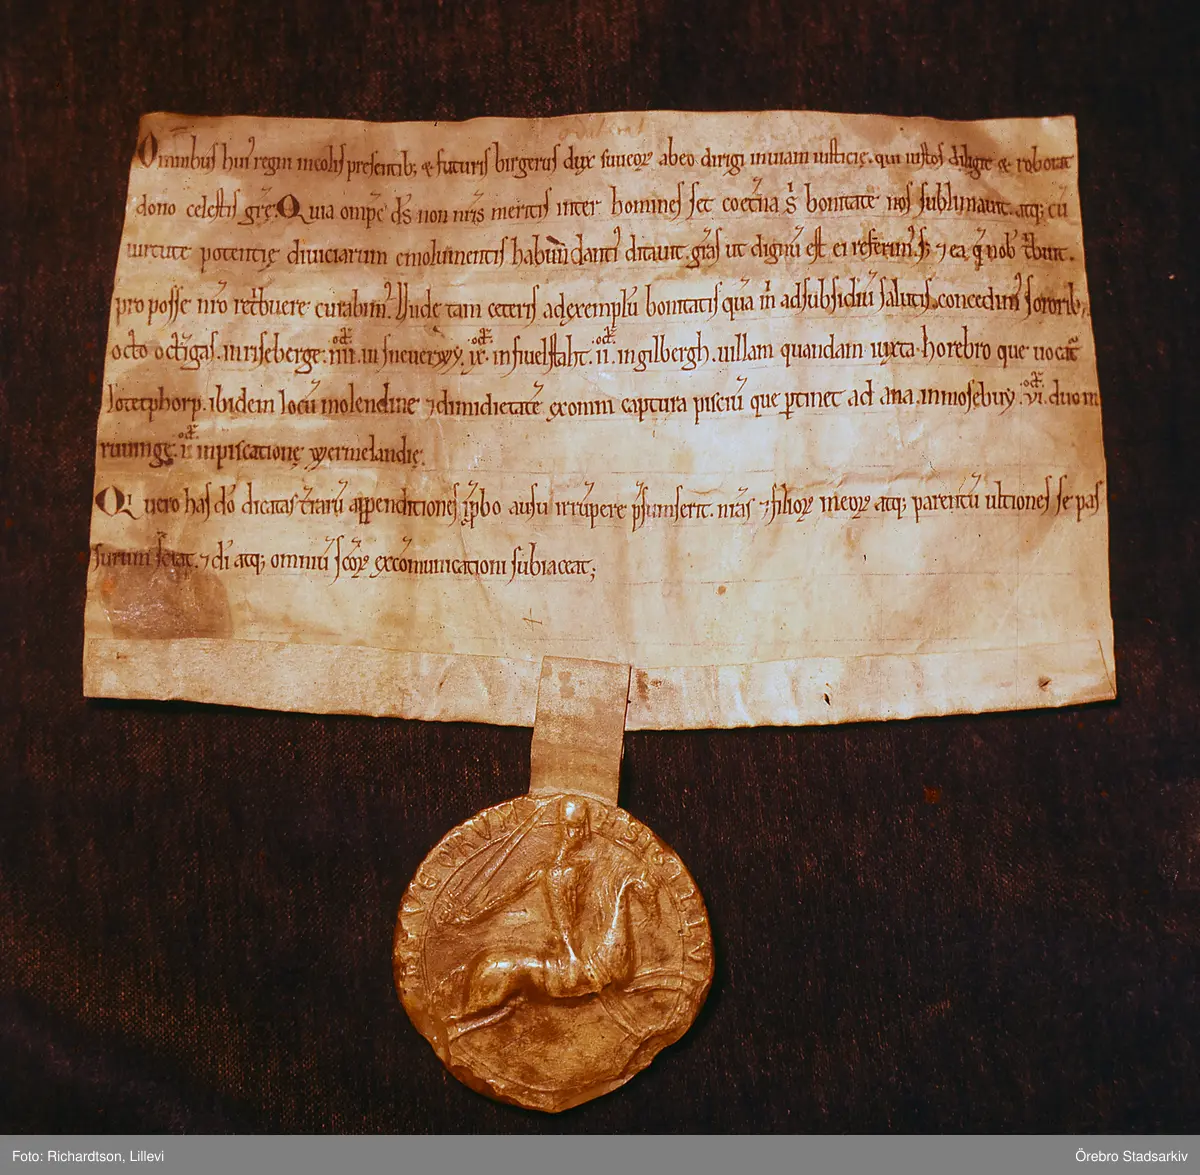 Omnibus hui᷒ regni incolis presentib; & futuris birgerus dux sueuoꝝ abeo dirigi inuiam iusticię. qui iustos diligit & roborat
dono celestis grę. Quia omp̄s ds̄ non nr̄is meritis inter homines set coetn̄a s̄ bonitate nos sublimauit. atq; cū
uirtute potentię diuiciarum emolumentis habundanti᷒ ditauit. gr̄as ut dignū est ei referim᷒. s; ⁊ ea q̄ nob᷒ t̄buit.
pro posse nr̄o ret̄buere curabim᷒. Unde tam ceteris adexemplū bonitatis quā m̄ adsubsidiū salutis. concedim᷒ sororib;
octo octīgas. inriseberge. iiii. in sneuerwy. ix. in fiuelstaht. ii. ingilbergh. uillam quandam iuxta horebro que uocat᷒
lotetphorp. ibidem locū molendine ⁊ dimidietatē exomni captura pisciū que ꝑtinet ad ana. inmosebuy. vi. duo in
ruungę. ii inpiscationę wermelandię.
Qi uero has do᷒ dicatas t̄raꝝ appenditiones ꝓbo ausu irrūpere p̄sumserit. meas ⁊ filioꝝ meoꝝ atq; parentū ultiones se pas
surum sciat. ⁊ di᷒ atq; omniū sc̄oꝝ excōmunicationi subiaceat;
SIGILLVM
Foto: Richardtson, Lillevi
Örebro Stadsarkiv